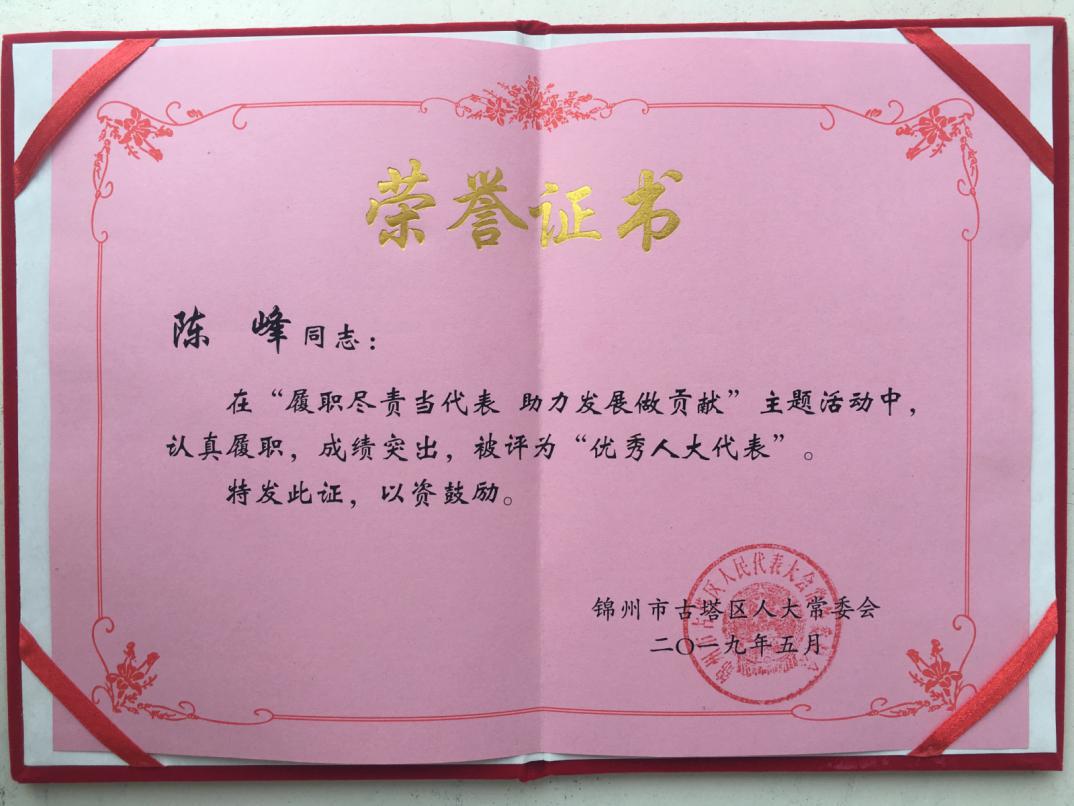 荣誉证书
陈 峰同志：
在“履职尽责当代表 助力发展做贡献”主题活动中，
认真履职，成绩突出，被评为“优秀人大代表”。
特发此证，以资鼓励。
锦州市古塔区人大常委会
二〇一九年五月